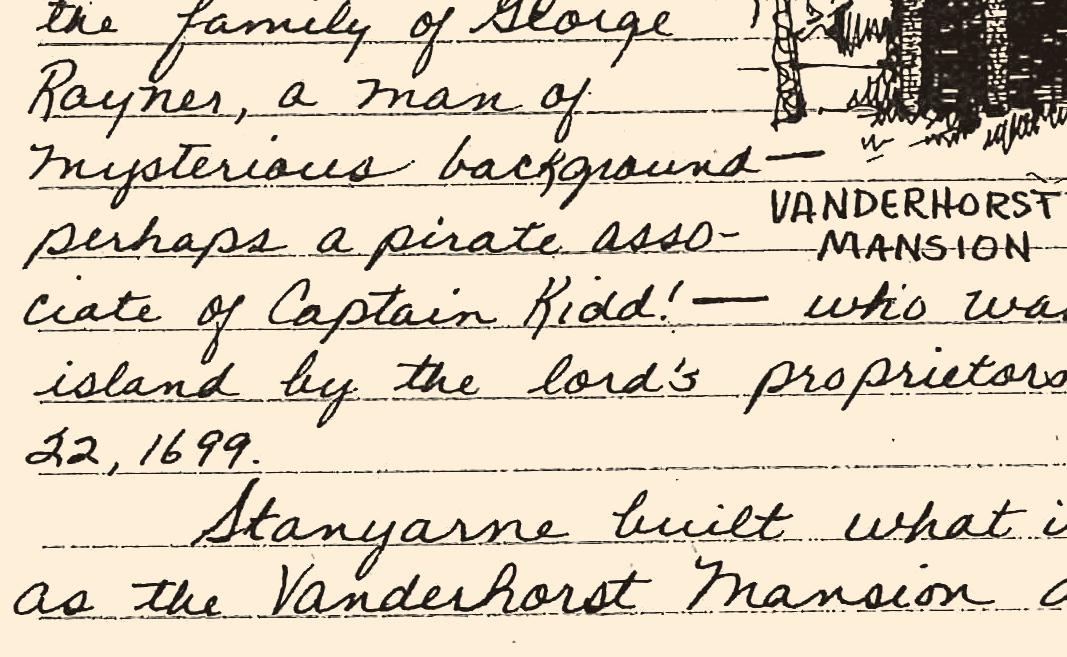 the family of George
Rayner, a man of
mysterious background—
perhaps a pirate asso-
VANDERHORST
MANSION
ciate of Captain Kidd!— who wa
island by the lord's proprietors
22, 1699.
Stanyarne built what i
as the Vanderhorst Mansion